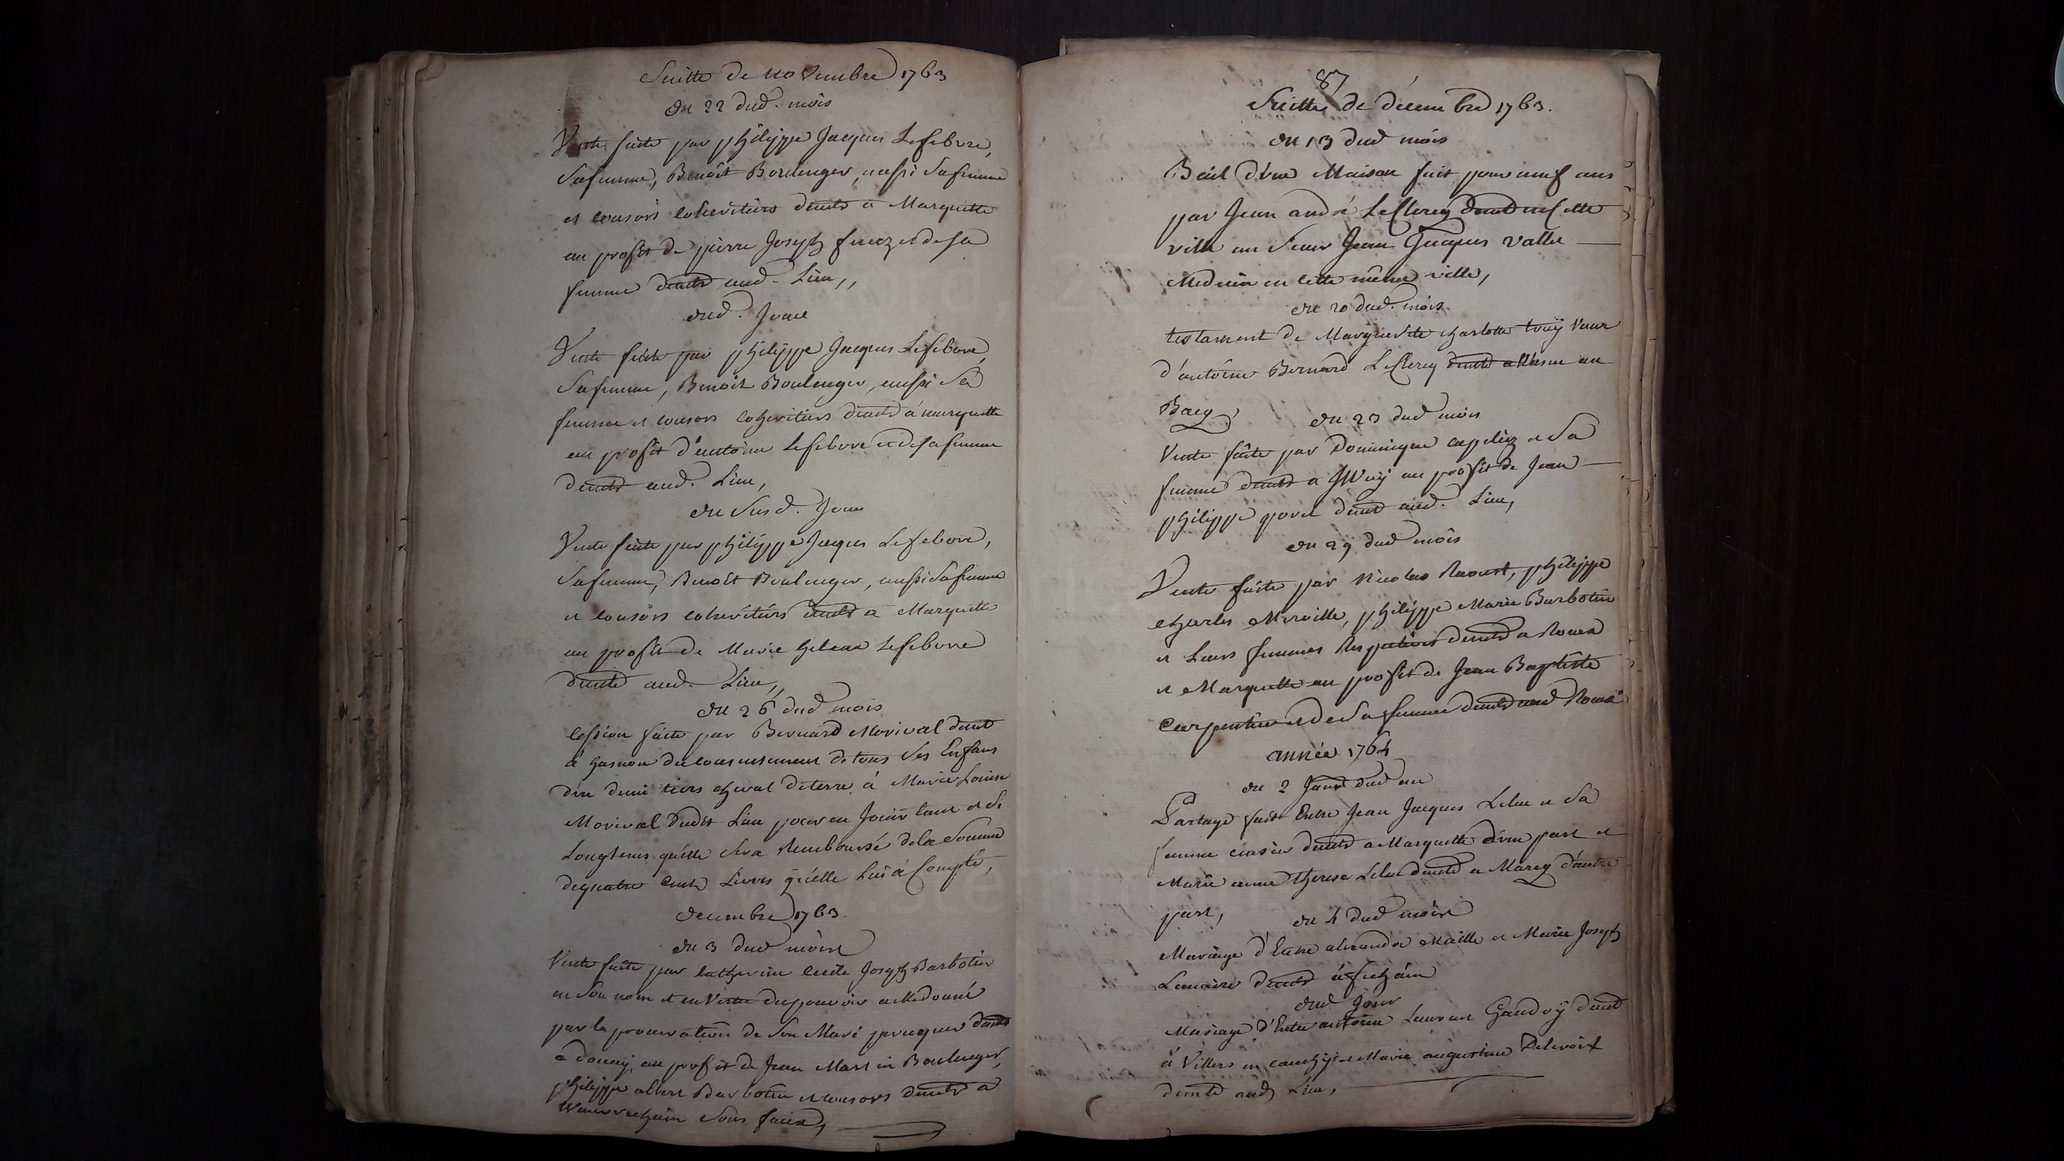 Suitte de novembre 1763
du 22 dud. mois
Vente faite par philippe Jacques Lefebvre,
Safemme, Benoît Boulenger, aussi Safemme
et consors coheritiers demts a Marquette
au profit de pierre Joseph et de sa
femme demts aud. Lieu,,
dud. Jour
Vente faite par philippe Jacques Lefebvre,
Safemme, Benoit Boulenger, aussi Sa
femme et consors coheritiers demts á marquette
au profit d'antoine Lefebvre et de sa femme
demts aud. Lieu,
du Susd. Jour
Vente faite par philippe Jacques Lefebvre,
Safemme, Benoît Boulenger, aussi Safemme
et consors coheritiers demts a Marquette
au profit de Marie helene Lefebvre
demte aud. Lieu,,
du 26 dud mois
Cession faite par Bernard Morival demt
á hasnon du consentement de tous Ses Enfans
d'un demi tiers cheval deterre, á Marie Louise
Morival dudit Lieu pour en Jouir tant et Si
Longtems quelle Sera Remboursé dela Somme
dequatre Cent Livres qu'elle Lui á Compté,
decembre 1763.
du 3 dud mois
Vente faite par catherine cecile Joseph Barbotin
en Son nom et en Vertu du pouvoir a elle donné
par la procuration de Son Mari demt
a douay, au profit de Jean Martin Boulenger,
philippe albert Barbotin et consors demts a
Wavrechain Sous faux,
87
Suitte de décembre 1763.
du 13 dud mois
Bail d'une Maison fait pour neuf ans
par Jean andré LeClercq demt en cette
ville au Sieur Jean Jacques vallée
Medecin en cette même ville,
du 20 dud. mois.
testament de Marguerite charlotte Veuve
d'antoine Bernard LeClercq demte a au
Bacq,
du 23 dud mois
Vente faite par Dominique et Sa
femme demts a JWuÿ au profit de Jean
philippe demt aud. Lieu,
du 29 dud mois
Vente faite par Nicolas Raoust, philippe
charles Merville, philippe Marie Barbotin
et Leurs femmes Respectives demts a Roeux
et Marquette au profit de Jean Baptiste
Carpentier et de Sa femme demts aud Roeux
année 1764
du 2 Janr dud an
Partage fait Entre Jean Jacques Leluc et Sa
femme demts a Marquette d'une part et
Marie anne therese Leluc demte a Marcq d'autre
part,
du 4 dud mois
Mariage d'Entre alexandre Maille et Marie Joseph
Lemaire demts
dud Jour
Mariage d'Entre antoine Laurent Gaudrÿ demt
á Villers en cauchÿ et Marie augustine Delcroix
demte aud Lieu,